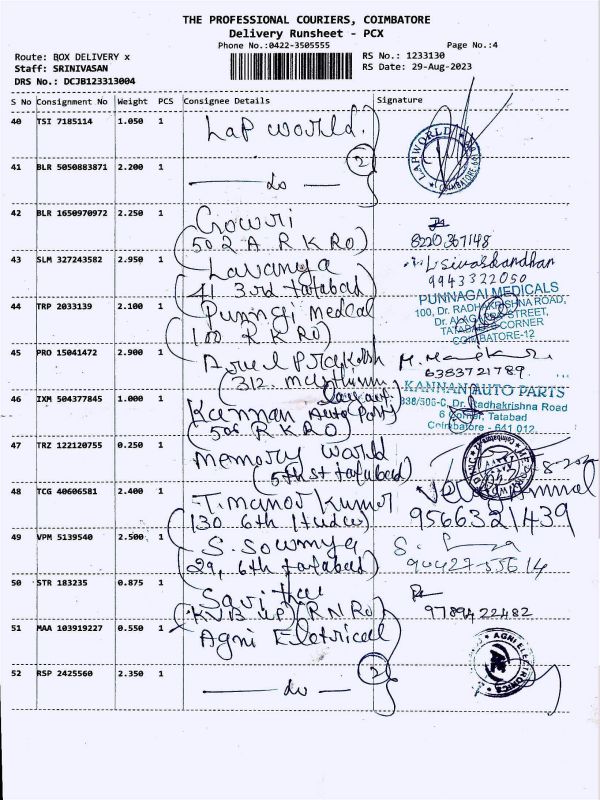 THE PROFESSIONAL COURIERS, COIMBATORE
Delivery Runsheet - PCX
Phone No.:0422-3505555 Page No.:4
Route: BOX DELIVERY x RS No.: 1233130
Staff: SRINIVASAN RS Date: 29-Aug-2023
DRS No.: DCJB123313004
S No Consignment No Weight PCS Consignee Details Signature
40 TSI 7185114 1.050 1 Lap world.
LAPWORLD
COIMBATORE
2
41 BLR 5050883871 2.200 1 do
42 BLR 1650970972 2.250 1 Gowri
(502 A R K RO) 8220367148
43 SLM 327243582 2.950 1 Lavanya L Sivaskandhan
(41 3rd tatabad) 9943322050
44 TRP 2033139 2.100 1 Punnigi Medical
(100 R K RO)
PUNNAGAI MEDICALS
100, Dr. RADHAKRISHNA ROAD,
Dr. ALAGAPPA STREET,
TATABAD CORNER
COIMBATORE-12
45 PRO 15041472 2.900 1 Arul Prakash
(312. 6383721789
46 IXM 504377845 1.000 1 Kannan Auto (Part)
(506 R K RO)
KANNAN AUTO PARTS
338/506-C, Dr. Radhakrishna Road
6 Corner, Tatabad
Coimbatore - 641 012.
47 TRZ 122120755 0.250 1 Memory world
(5th st tatabad)
48 TCG 40606581 2.400 1 T. Manoj Kumar
(130 6th 9566321439
49 VPM 5139540 2.500 1 S. Sowmya
(29, 6th tatabad)
50 STR 183235 0.875 1 Savitha
(KVB UP) (R N RO) 9789422482
51 MAA 103919227 0.550 1 Agni Eletrical
AGNI ELECTRONICS
2
52 RSP 2425560 2.350 1 do